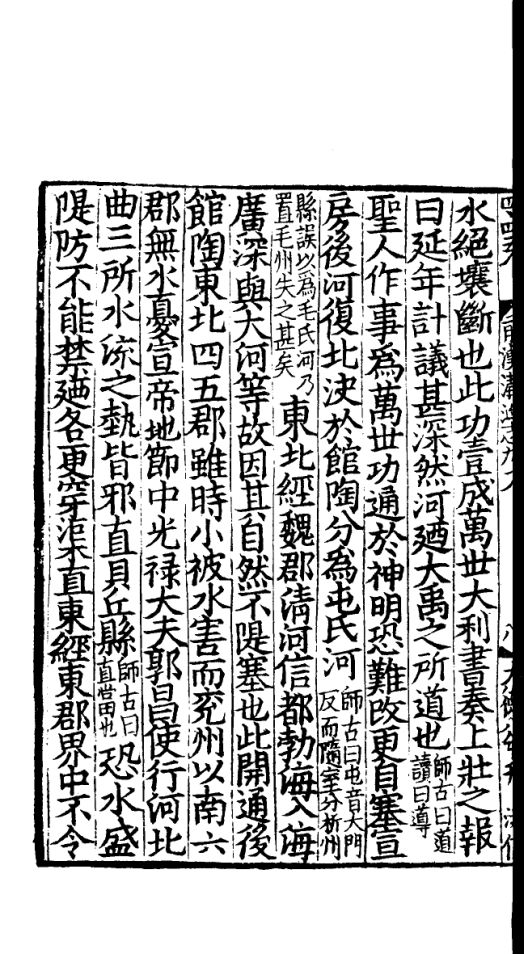 水絕壤斷也此功壹成萬世大利書奏上壯之報
曰延年計議甚深然河廼大禹之所道也師古曰道讀曰導
聖人作事爲萬世功通於神明恐難改更自塞宣
房後河復北決於館陶分爲屯氏河師古曰屯音大門反而隨室分析州
縣誤以爲毛氏河乃置毛州失之甚矣東北經魏郡清河信都勃海入海
廣深與大河等故因其自然不隄塞也此開通後
館陶東北四五郡雖時小被水害而兖州以南六
郡無水憂宣帝地節中光禄大夫郭昌使行河北
曲三所水流之埶皆邪直貝丘縣師古曰直當也恐水盛
隄防不能禁廼各更穿渠直東經東郡界中不令